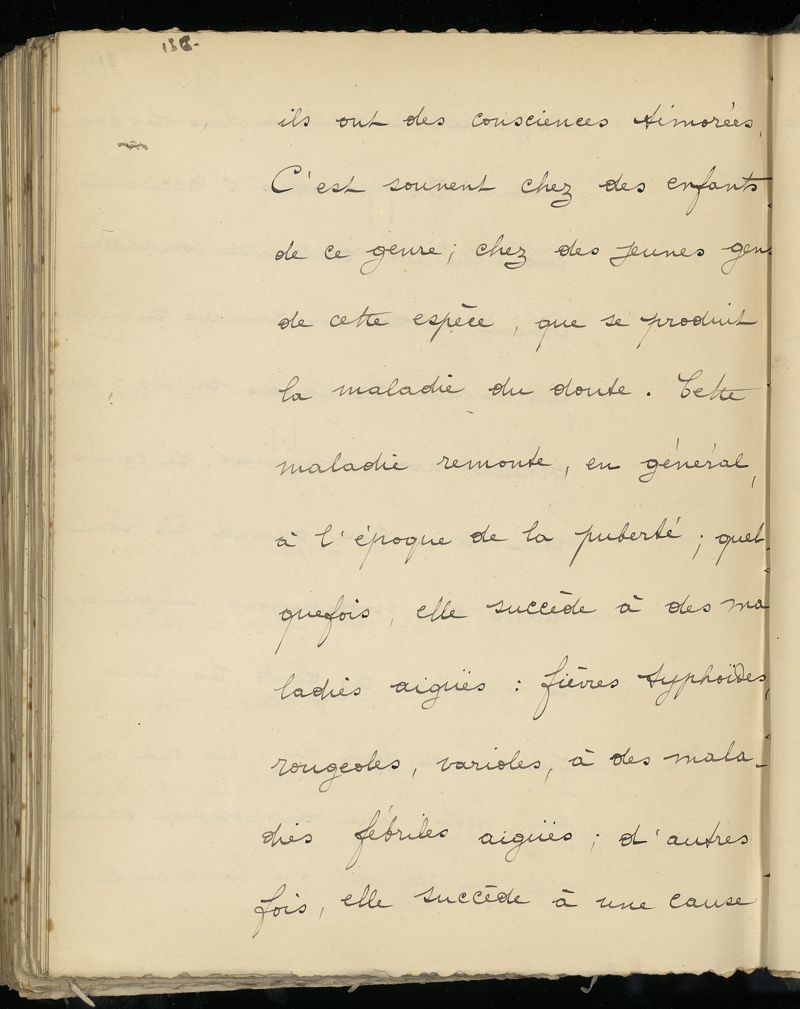 ils ont des consciences timorées.
C'est souvent chez des enfants
de ce genre; chez des jeunes gens
de cette espèce, que se produit
la maladie du doute. Cette
maladie remonte, en général,
à l'époque de la puberté; quel-
quefois, elle succède à des ma
ladies aiguës : fièvres typhoïdes,
rougeoles, varioles, à des mala-
dies fébriles aiguës; d'autres
fois, elle succède à une cause